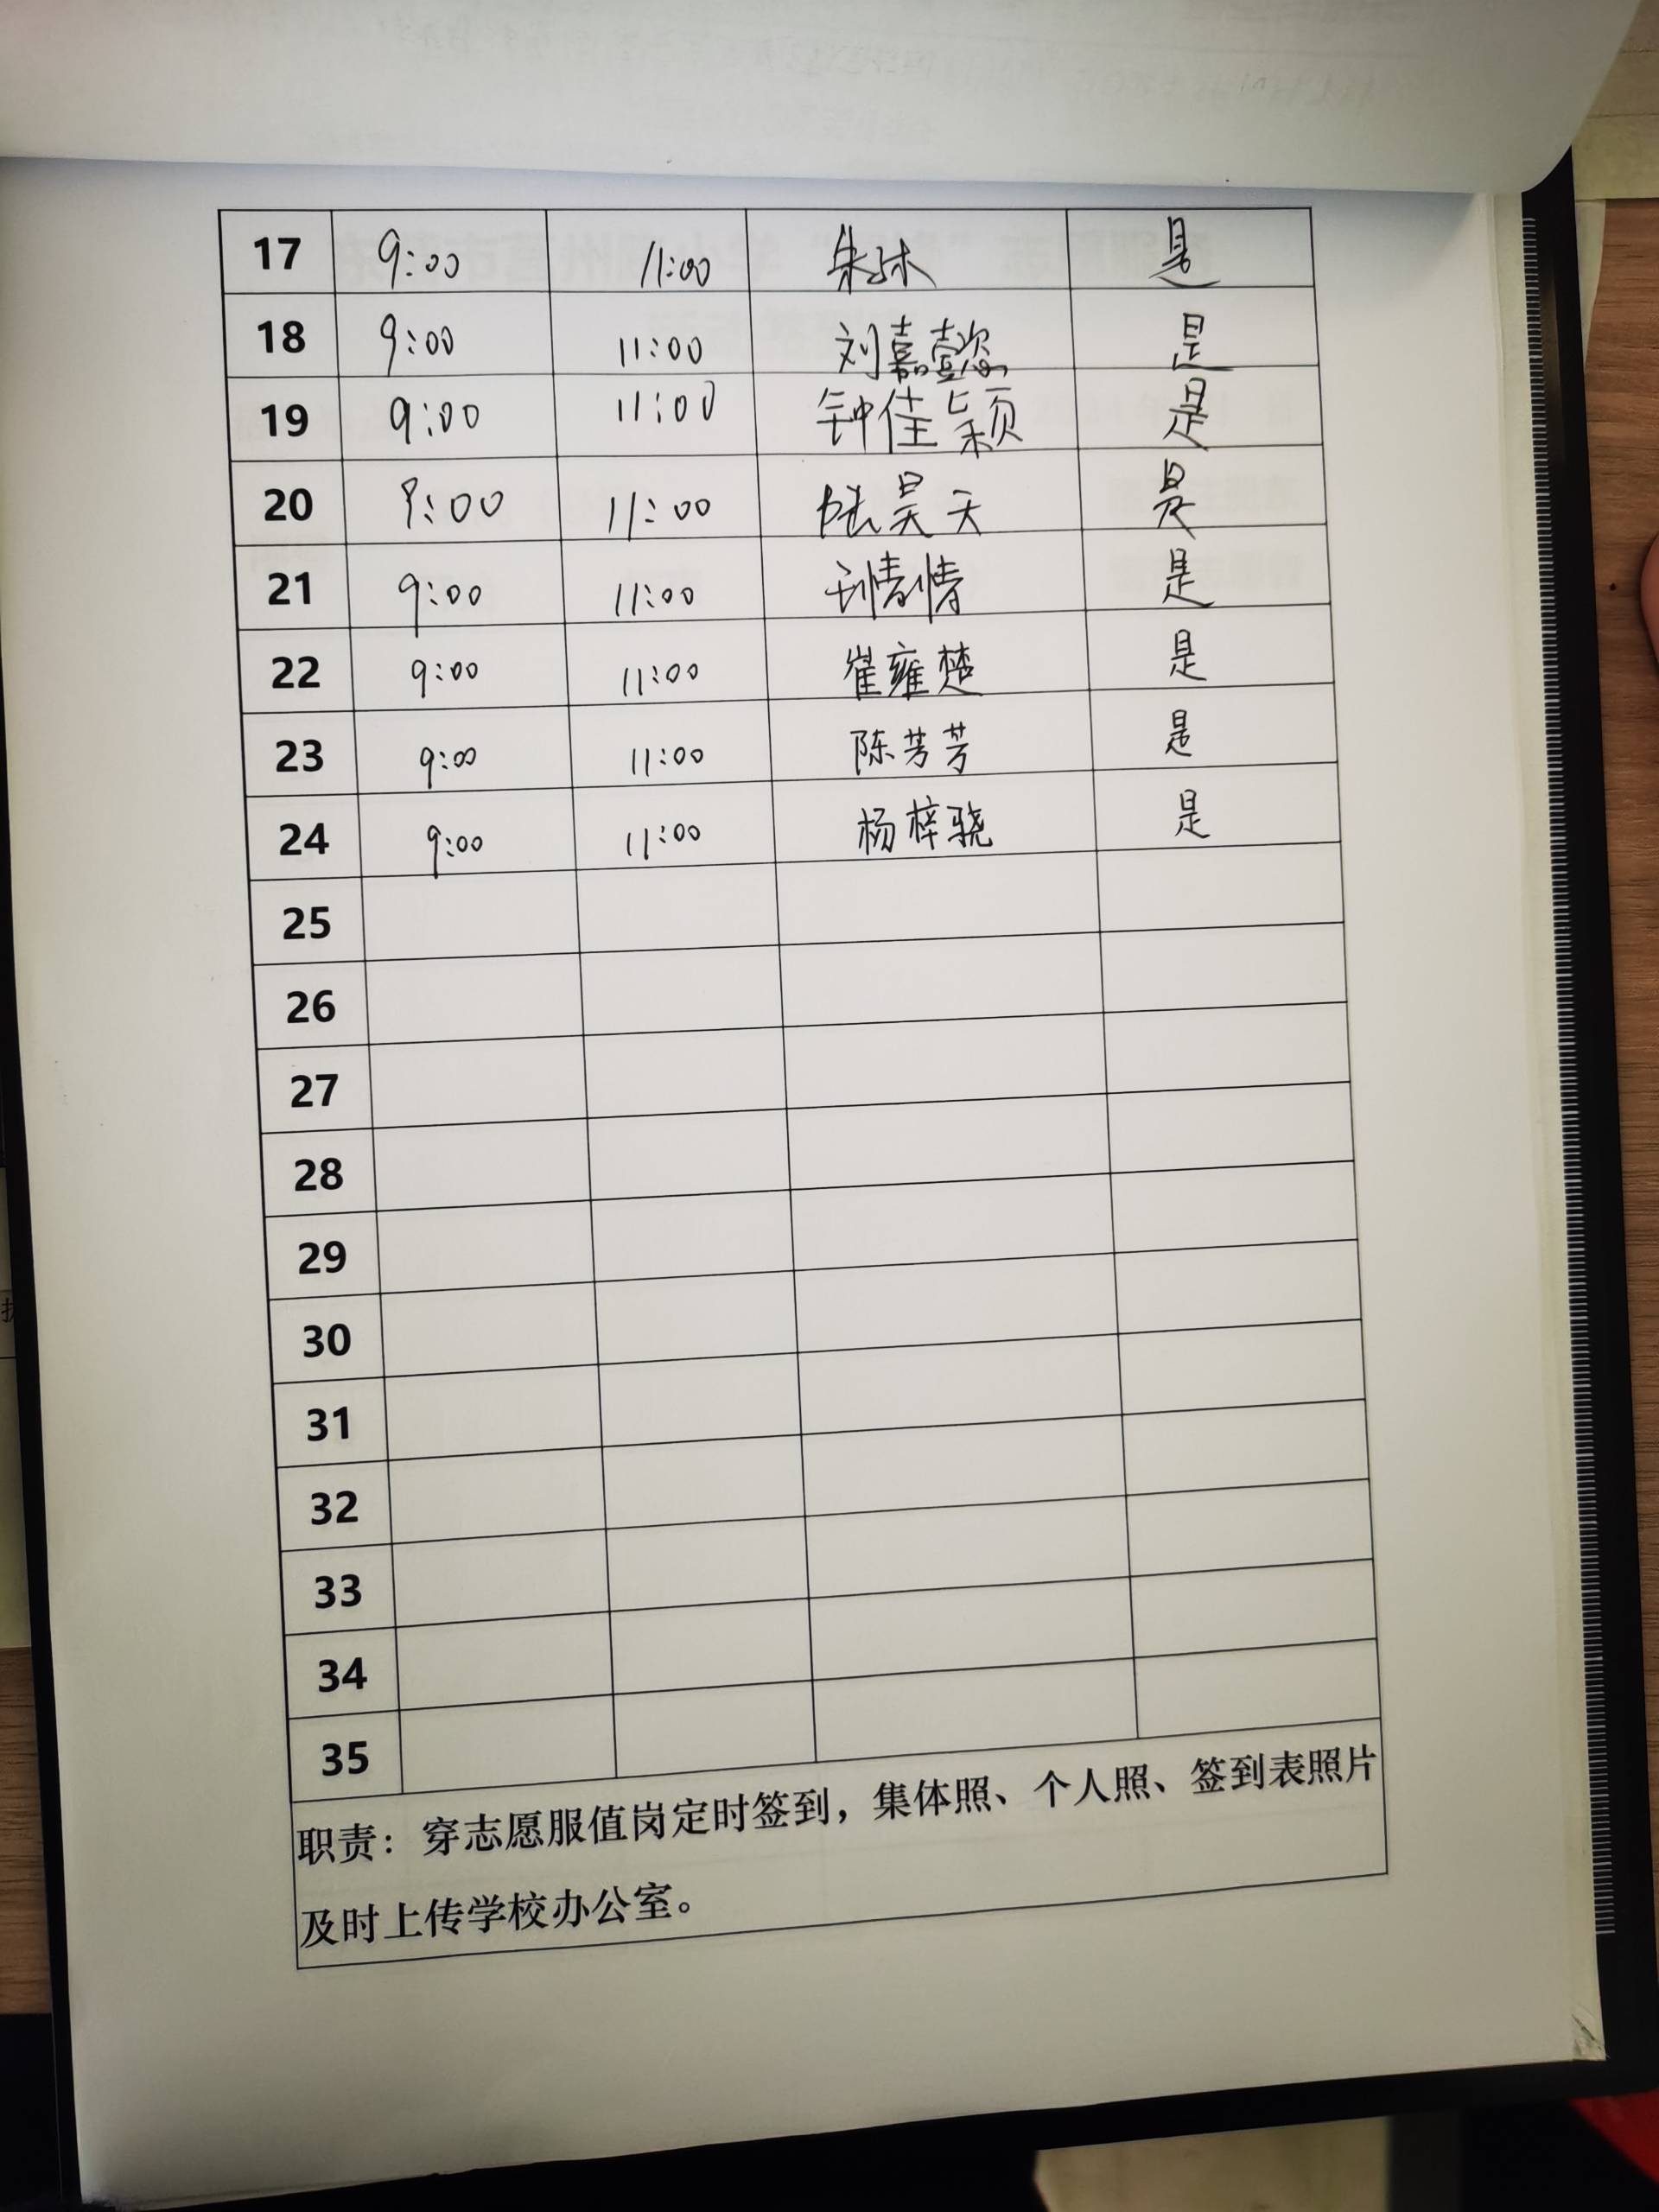 17 9:00 11:00 朱琳 是
18 9:00 11:00 刘嘉懿 是
19 9:00 11:00 钟佳颖 是
20 9:00 11:00 陆昊天 是
21 9:00 11:00 是
22 9:00 11:00 崔雍楚 是
23 9:00 11:00 陈芳芳 是
24 9:00 11:00 杨梓骁 是
25
26
27
28
29
30
31
32
33
34
35
职责：穿志愿服值岗定时签到，集体照、个人照、签到表照片
及时上传学校办公室。